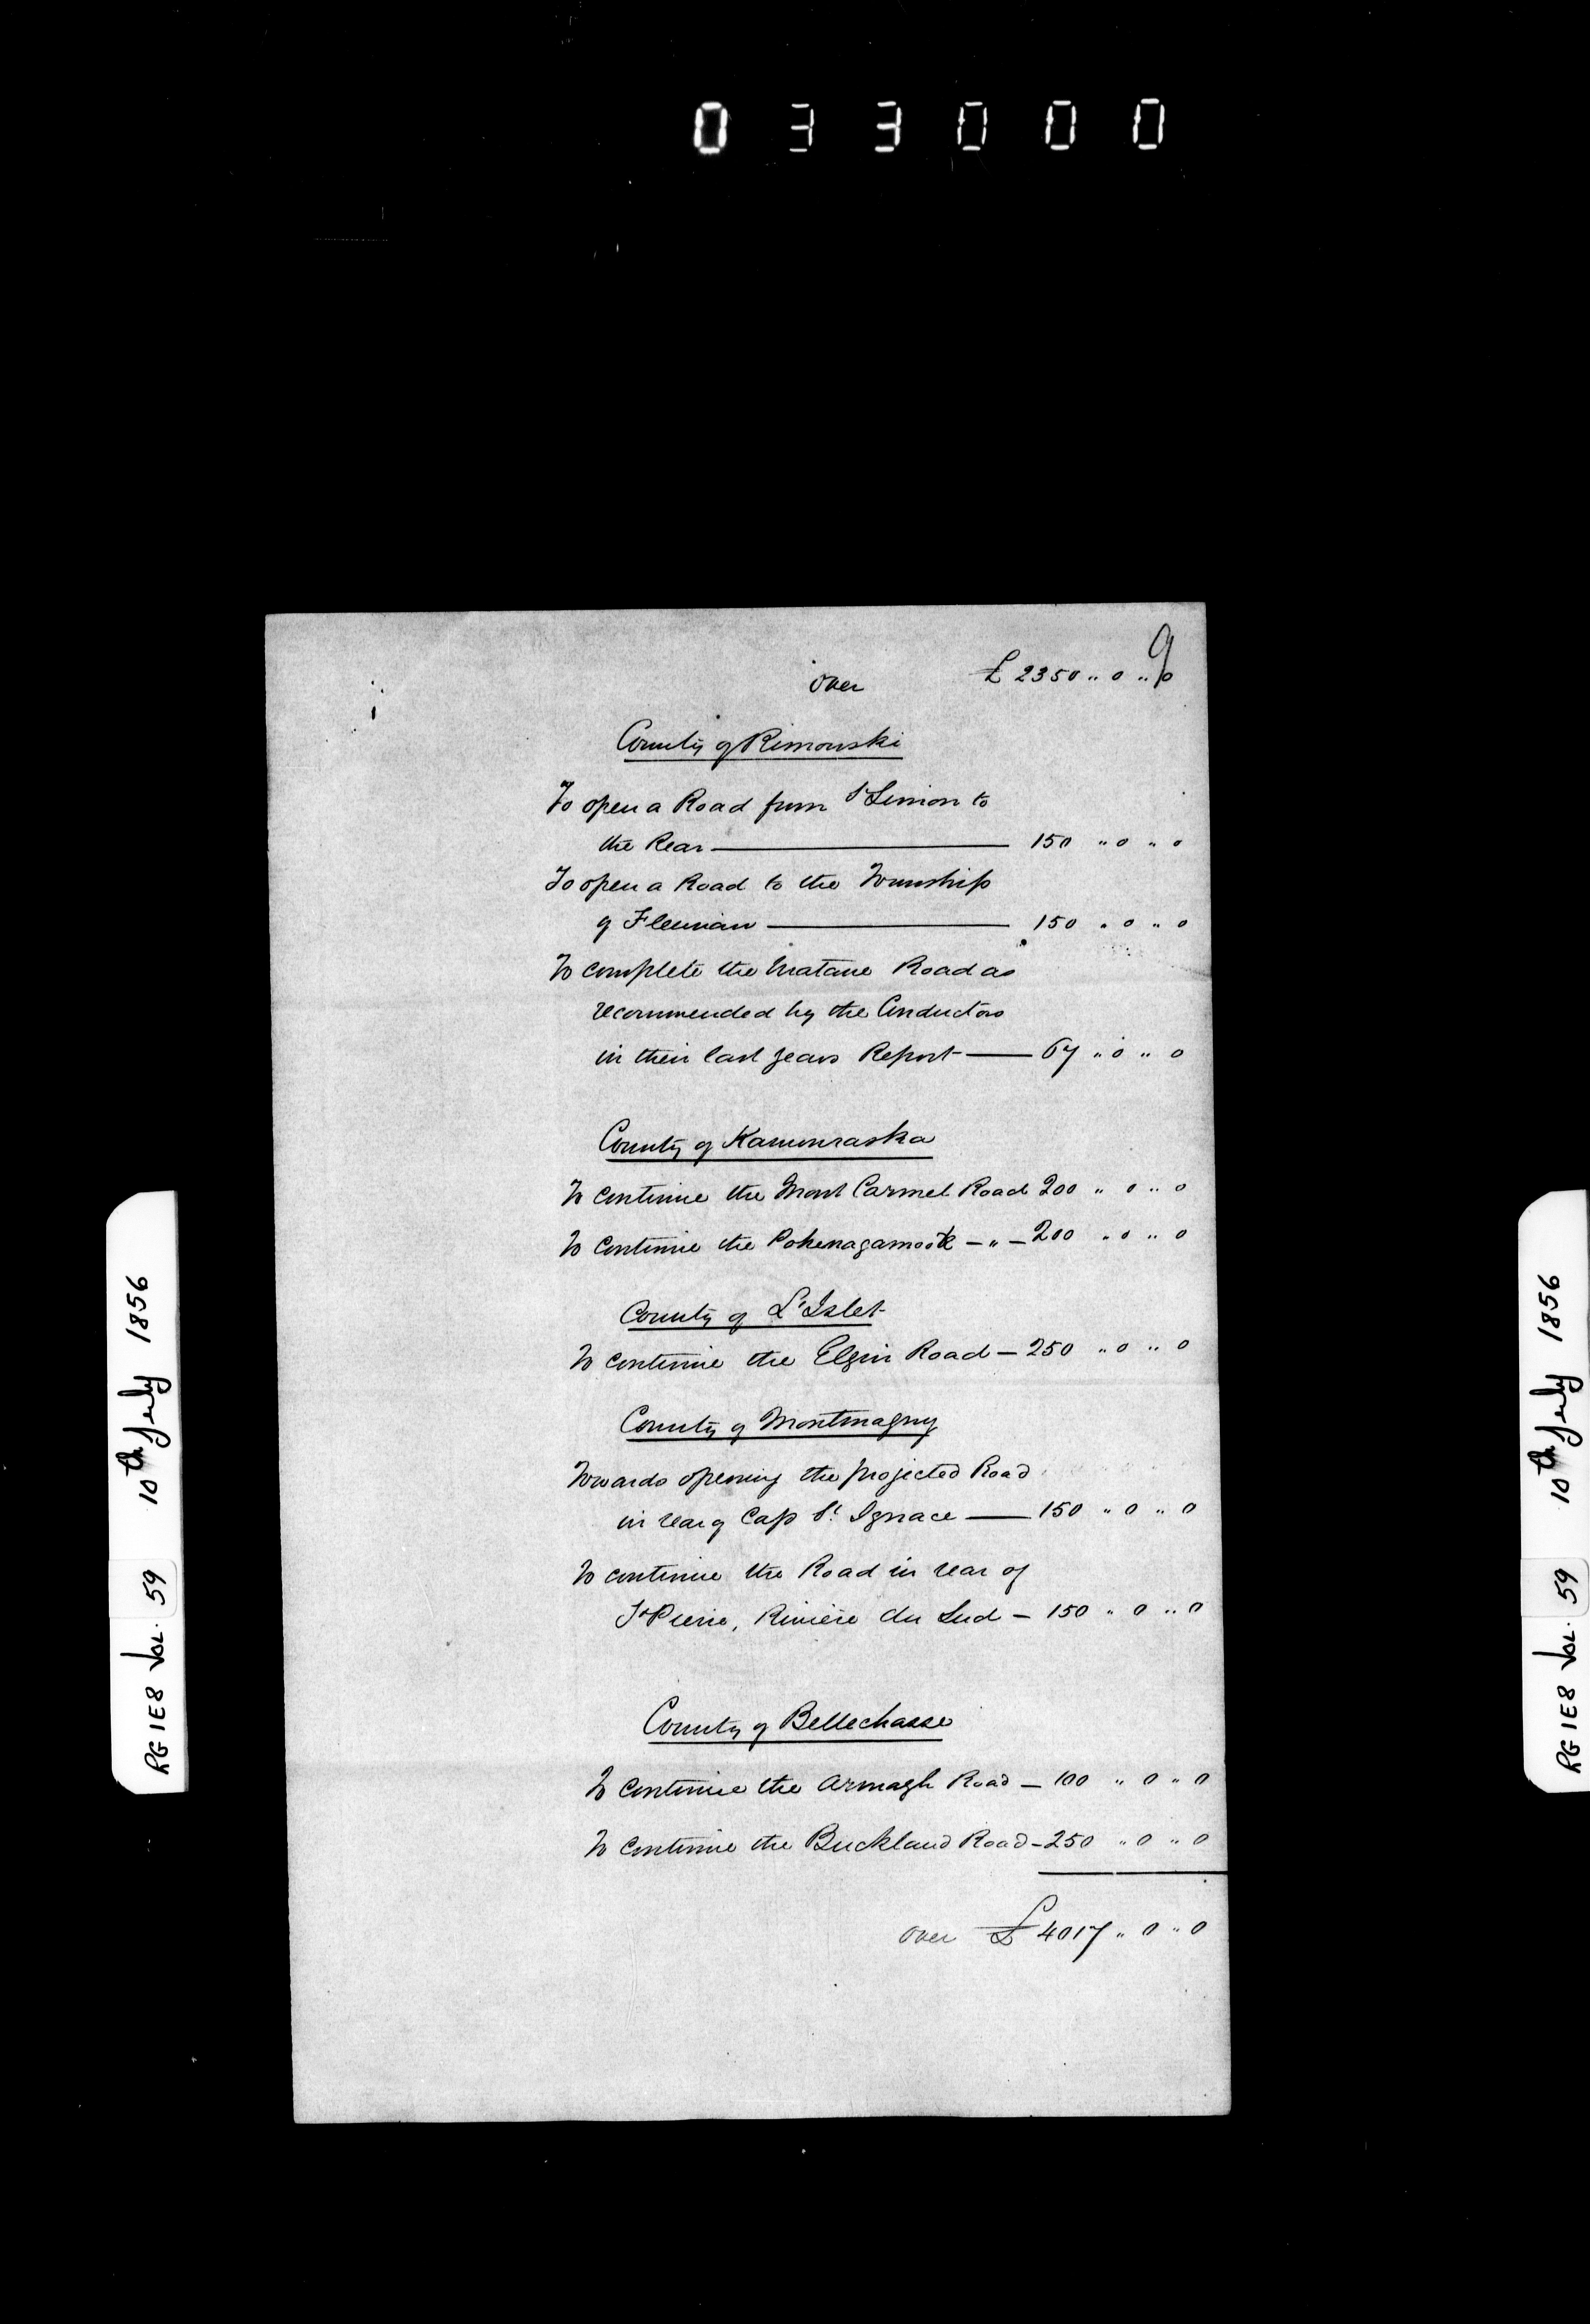 033000
9
over £ 2350 " 0 " 0
County of Rimouski
To open a Road from St Simon to
the Rear — 150 " 0 " 0
To open a Road to the Township
of Fleuriau — 150 " 0 " 0
To complete the Matane Road as
recommended by the Conductors
in their last years Report — 67 " 0 " 0
County of Kamouraska
To continue the Mont Carmel Road 200 " 0 " 0
To continue the Pohenagamook — " — 200 " 0 " 0
County of L'Islet
To continue the Elgin Road — 250 " 0 " 0
County of Montmagny
Towards opening the projected Road
in rear of Cap St. Ignace — 150 " 0 " 0
To continue the Road in rear of
St Pierre, Rivière du Sud — 150 " 0 " 0
County of Bellechasse
To continue the Armagh Road — 100 " 0 " 0
To continue the Buckland Road — 250 " 0 " 0
over £ 4017 " 0 " 0
RG 1E8 Vol. 59 10th July 1856
RG 1E8 Vol. 59 10th July 1856